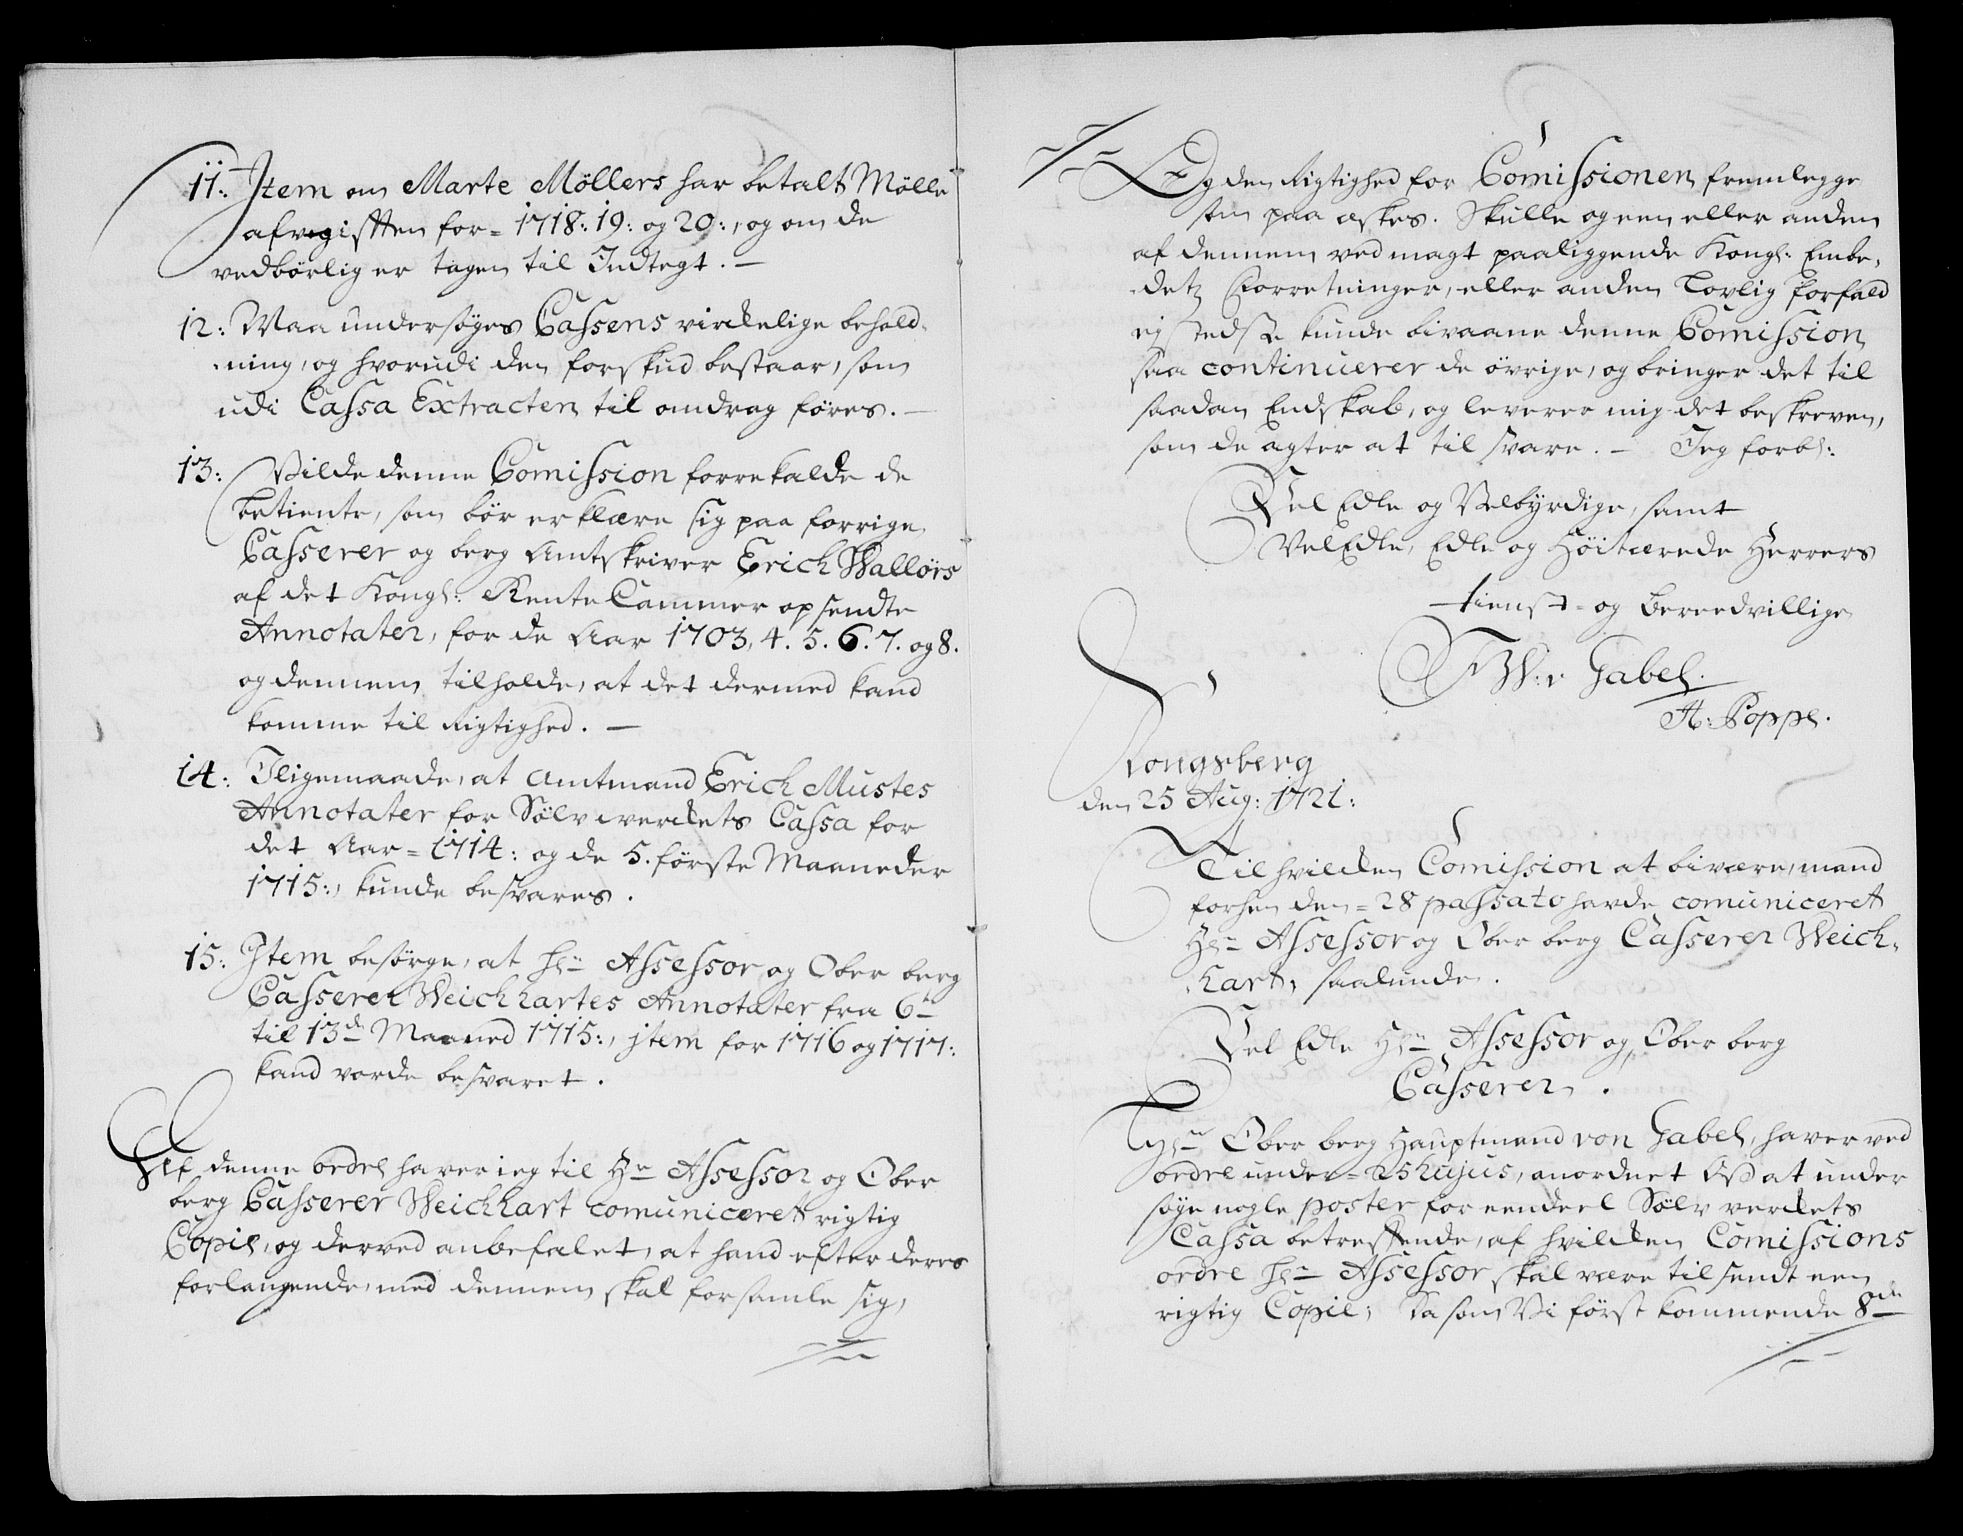 11: Item om Marte Möllers har betalt Mölle
afvegifften for = 1718: 19: og 20:, og om de
vedbörlig er tagen til Indtegt. —
12: Maa undersöges Cassens virckelige behold-
ning, og hvorudi den forskud bestaar, som
udi Cassa Extracten til omdrag föres. —
13: Vilde denne Comission forrekalde de
betiente, som bör erklære sig paa forrige
Casserer og berg Amtskriver Erich Wallörs
af det Kongl: Rente Cammer opsendte
Annotater, for de Aar 1703, 4. 5. 6. 7. og 8.
og dennem tilholde, at det dermed kand
komme til Rigtighed. —
14: Iligemaade, at Amtmand Erich Mustes
Annotater for Sölv werckets Cassa for
det Aar = 1714: og de 5. förste Maaneder
1715:, kunde besvares.
15: Item besörge, at Hr Assessor og Ober berg
Casserer Weichhartes Annotater fra 6te
til 13de Maaned 1715:, item for 1716 og 1717:
kand vorde besvaret.
Af denne ordre haver ieg til Hr Assessor og Ober
berg Casserer Weichhart comuniceret rigtig
Copie, og derved anbefalet, at hand efter deres
forlangende, med dennem skal forsamle sig,
Og den Rigtighed for Comissionen fremlegge
som paa æskes. Skulle og een eller anden
af dennem ved magt paaliggende Kongl: Embe-
detz Forretninger, eller anden Lovlig forfald
ej stedse kunde bivaane denne Comission
saa continuerer de övrige, og bringer det til
saadan Endskab, og leverer mig det beskreven,
som de agter at til svare. — Jeg forbl:
Vel Edle og Velbyrdige, samt
Vel Edle, Edle og Höitærede Herrers
tienst- og Bereedvillige
F W: v Gabel.
A: Poppe.
Kongsberg
den 25 Aug: 1721:
Til hvilcken Comission at bivære, mand
forhen den = 28 passato havde comuniceret
Hr Assessor og Ober berg Casserer Weich-
hart, saalunde.
Vel Edle Hr Assessor og Ober berg
Casserer.
Hr Ober berg Hauptmand von Gabel, haver ved
ordre under = 25 hujus, anordnet Os at under
söge nogle poster for eendeel Sölv verckets
Cassa betreffende, af hvilcken Comissions
ordre Hr Assessor skal være tilsendt een
rigtig Copie; Da som Vi först kommende 8de